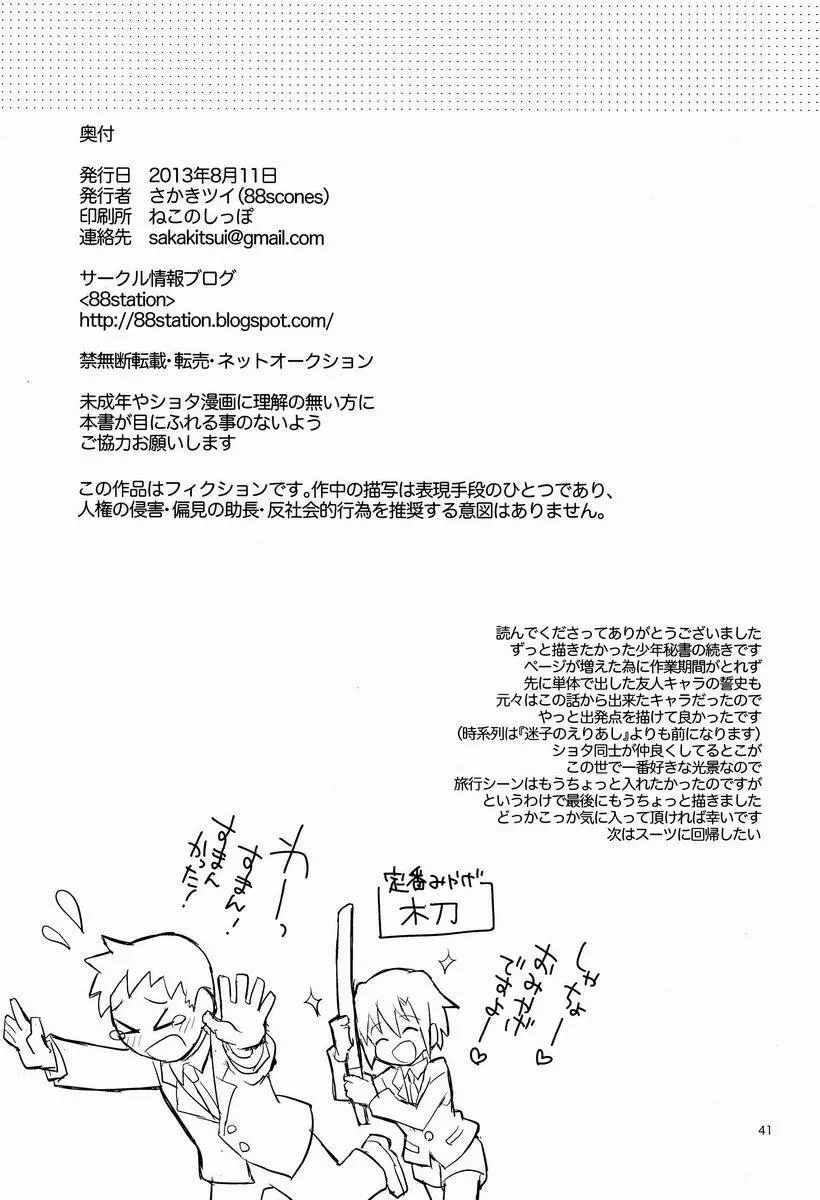 奥付
発行日 2013年8月11日
発行者 さかきツイ(88scones)
印刷所 ねこのしっぽ
連絡先 sakakitsui@gmail.com
サークル情報ブログ
<88station>
http://88station.blogspot.com/
禁無断転載・転売・ネットオークション
未成年やショタ漫画に理解の無い方に
本書が目にふれる事のないよう
ご協力お願いします
この作品はフィクションです。作中の描写は表現手段のひとつであり、
人権の侵害・偏見の助長・反社会的行為を推奨する意図はありません。
読んでくださってありがとうございました
ずっと描きたかった少年秘書の続きです
ページが増えた為に作業期間がとれず
先に単体で出した友人キャラの誓史も
元々はこの話から出来たキャラだったので
やっと出発点を描けて良かったです
(時系列は『迷子のえりあし』よりも前になります)
ショタ同士が仲良くしてるとこが
この世で一番好きな光景なので
旅行シーンはもうちょっと入れたかったのですが
というわけで最後にもうちょっと描きました
どっかこっか気に入って頂ければ幸いです
次はスーツに回帰したい
わーっ
すまん!
すまん
かった!
定番みやげ
木刀
しゃちょー♡
おみやげ
ですよー♡
41